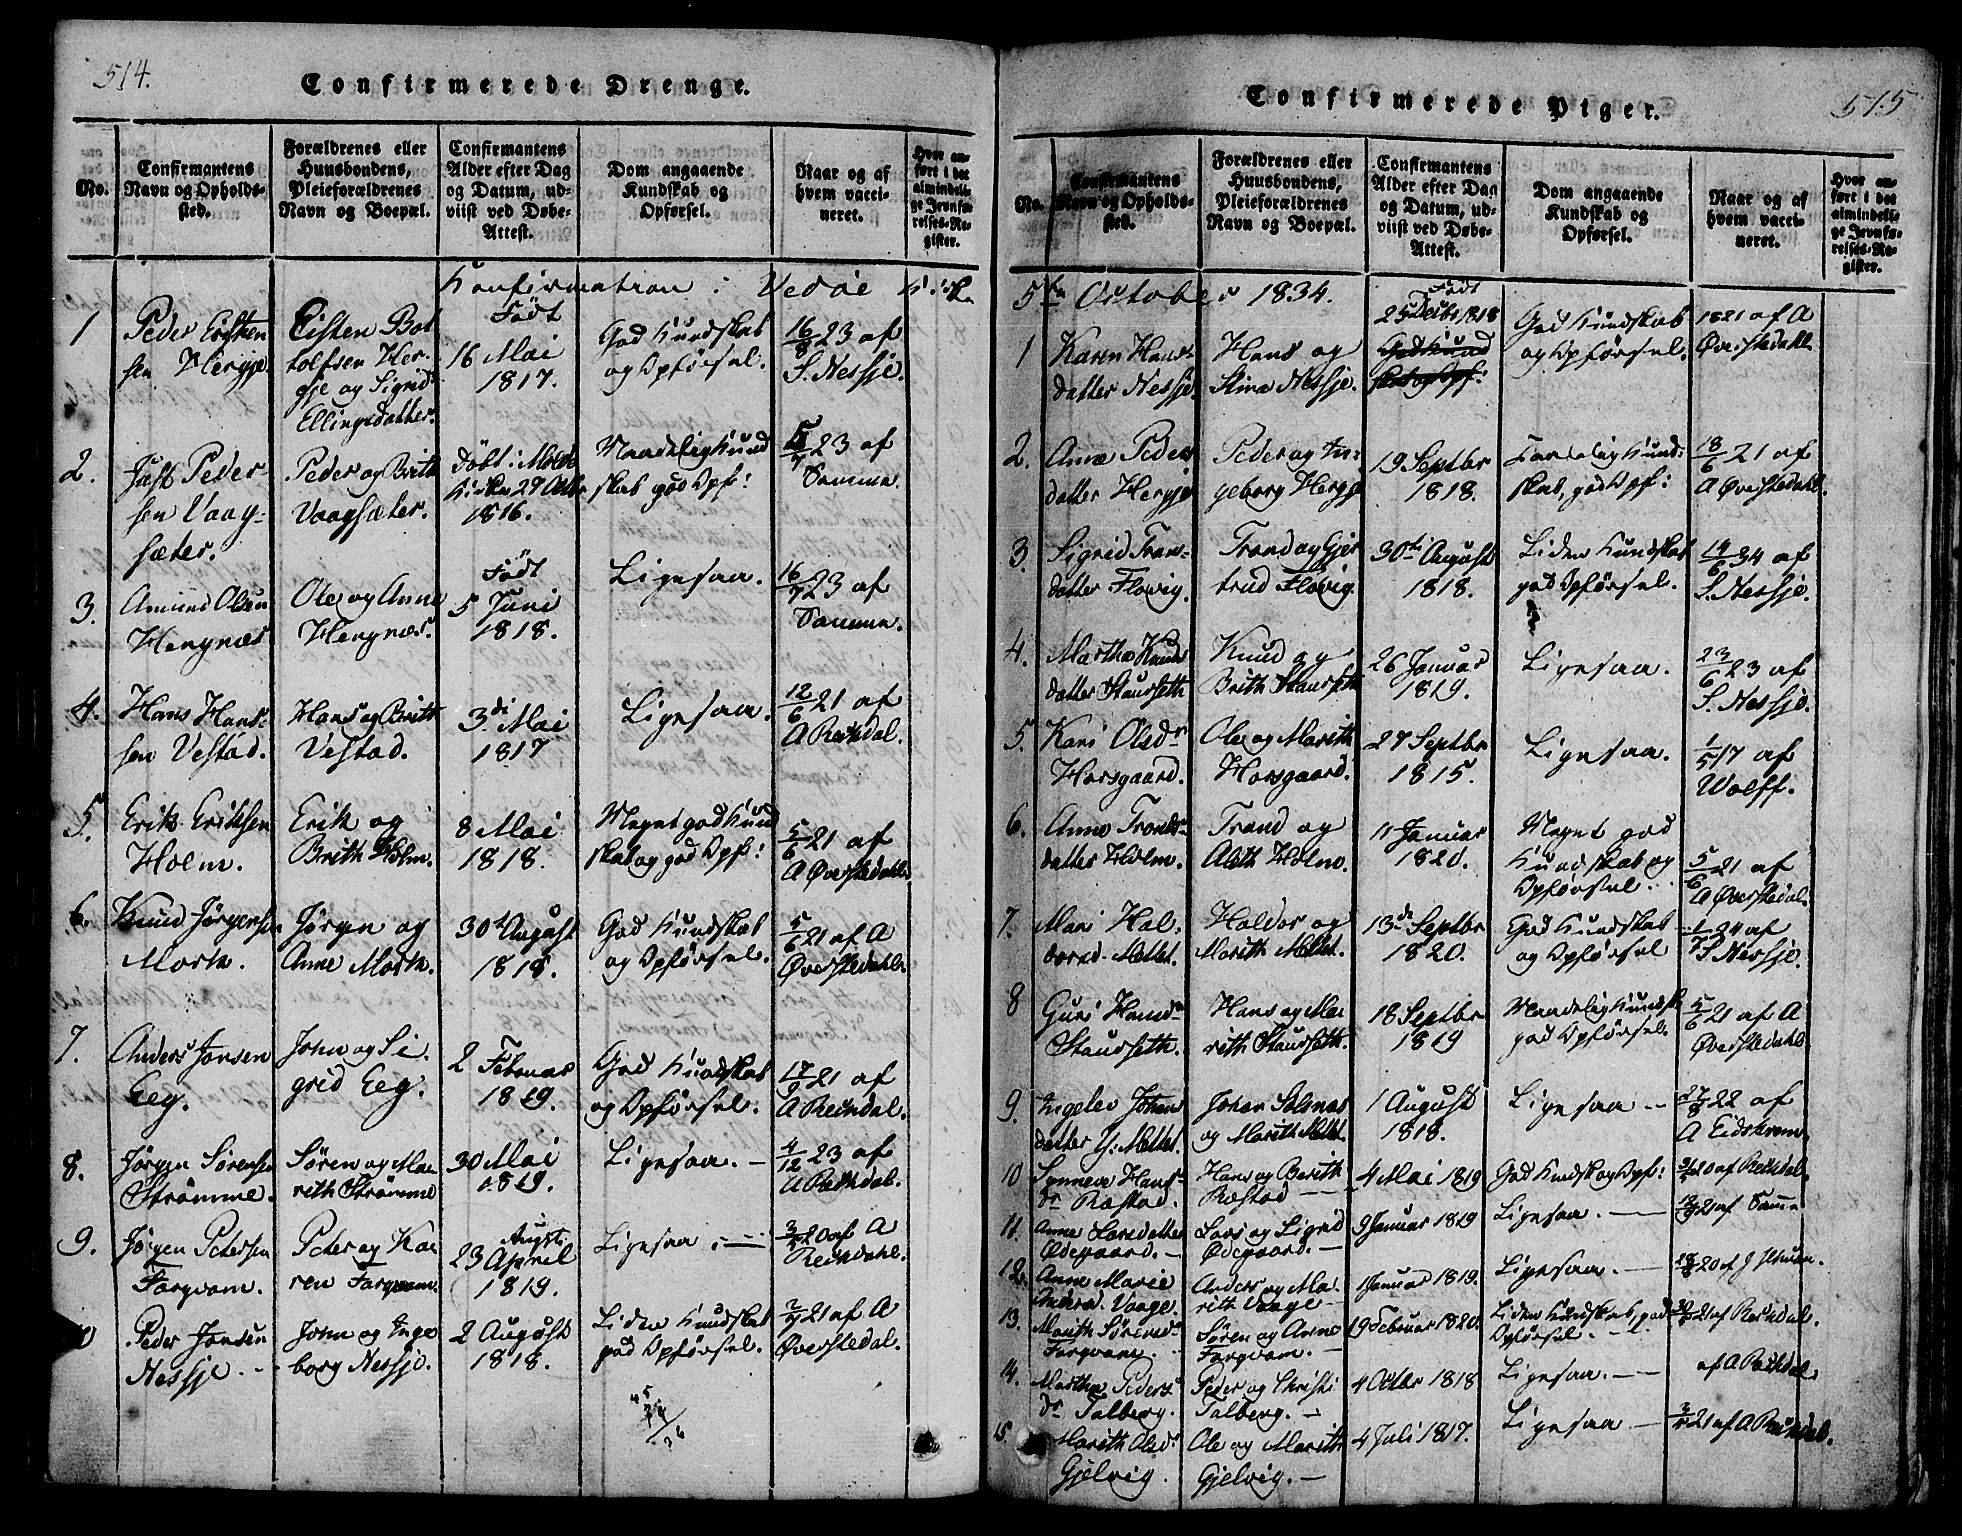 514.
Confirmerede Drenge.
No.
Confirmantens
Navn og Opholds-
sted.
Forældrenes eller
Huusbondens,
Pleieforældrenes
Navn og Boepæl.
Confirmantens
Alder efter Dag
og Datum, ud-
viist ved Døbe-
Attest.
Dom angaaende
Kundskab og
Opførsel.
Naar og af
hvem vacci-
neret.
Hvor an-
ført i det
almindeli-
ge Jevnfø-
relses-Re-
gister.
Konfirmation i Vedøe Kirke
1
Peder Eisten
sen Hergje
Eisten Bot
tolfsen Her-
gje og Sigrid
Ellingsdatter.
Født
16 Mai
1817.
God Kundskab
og Opførsel.
16/8 23 af
S. Nessje.
2.
Just Peder-
sen Vaag-
sæter.
Peder og Brith
Vaagsæter.
Døbt i Molde
Kirke 27 Octbr
1816.
Maadelig Kund
skab god Opf:
5/7 23 af
Samme.
3.
Amund Olsen
Hengnæs
Ole og Anne
Hengnæs.
Født
5 Juni
1818.
Ligesaa.
16/7 23 af
Samme.
4.
Hans Hans-
sen Vestad.
Hans og Brith
Vestad.
3di Mai
1817
Ligesaa.
12/6 21 af
A Rechdal.
5.
Erik Eriksen
Holm.
Erik og
Brith Holm.
8 Mai
1818.
Meget god Kund
skab og god Opf:
5/6 21 af
A Øverstedahl.
6.
Knud Jørgensen
Mork.
Jørgen og
Anne Mork.
30t August
1818.
God Kundskab
og Opførsel.
5/6 21 af A
Øverstedahl.
7.
Anders Jonsen
Eeg.
John og Si-
grid Eeg.
2 Februar
1819.
God Kundskab
og Opførsel.
17/9 21 af
A Rechdal.
8.
Jørgen Sørensen
Strømme.
Søren og Ma
rith Strømme
30 Mai
1819.
Ligesaa. —
4/12 23 af
A Rechdal.
9.
Jørgen Petersen
Fargvam.
Peter og Ka
ren Fargvam.
Augsti
23 April
1819.
Ligesaa. —
20 af A
Rechdahl.
Peder Jonsen
Nessje. —
John og Inge
borg Nessje.
2 August
1818.
Liden Kundskab
god Opførsel.
21 af A
Øverstedal.
515
Confirmerede Piger.
No.
Confirmantens
Navn og Opholds-
sted.
Forældrenes eller
Huusbondens,
Pleieforældrenes
Navn og Boepæl.
Confirmantens
Alder efter Dag
og Datum, ud-
viist ved Døbe-
Attest.
Dom angaaende
Kundskab og
Opførsel.
Naar og af
hvem vacci-
neret.
Hvor an-
ført i det
almindeli-
ge Jevnfø-
relses-Re-
gister.
5te October 1834.
1
Karen Hans
datter Nessje.
Hans og
Stine Nessje.
Født
25 Decbr 1818
God Kund
skab og Opf:
God Kundskab
og Opførsel.
1821 af A
Øverstedahl.
2.
Anne Peders
datter Hergje
Peder og In-
geborg Hergje
19 Septbr
1818.
skab, god Opf:
18/6 21 af
A Øverstedahl.
3.
Sigrid Tron-
datter Flovig.
Trond og Gjer
trud Flovig.
30ti August
1818.
Liden Kundskab
god Opførsel.
14/6 34 af
S. Nessje.
4.
Marthe Knuds
datter Staurseth
Knud og
Brith Staurseth
26 Januar
1819.
Ligesaa.
23/6 23 af
S. Nessje.
5.
Kari Olsdr
Horsgaard.
Ole og Marith
Horsgaard.
27 Septbr
1815.
Ligesaa.
1/5 17 af
Wolff.
6.
Anne Tronds-
datter Holm.
Trond og
Aleth Holm.
11 Januar
1820.
Meget god
Kundskab og
Opførsel.
5/6 21 af
A Øverstedal.
7.
Mari Hal-
dorsd. Mettet.
Haldor og
Marith Mettet.
13de Septbr
1820.
God Kundskab
og Opførsel
1/7 24 af
S Nessje.
8
Guri Hansdr
Staurseth.
Hans og Ma
rith Staurseth.
18 Septbr
1819
Maadelig Kundsk
god Opførsel.
5/6 21 af A
Øverstedahl.
9.
Ingelev Johan
datter Y: Mettet.
Johan Solsnæs
og Marith Mettet.
1 August
1818.
Ligesaa —
27/8 22 af
A Eidskrem.
10
Synneve Hans-
dr Ræstad.
Hans og Berith
Ræstad —
4 Mai 1819
God Kundsk og Opf:
20 af Rechdal.
11.
Anne Larsdatter
Ødegaard. —
Lars og Sigrid
Ødegaard. —
9 Januar 1819
Ligesaa. —
21 af Samme
12.
Anne Marie
Andersd. Vaage.
Anders og Ma-
rith Vaage —
1 Januar 1819.
Ligesaa. —
13.
Marith Sørensd-
Fargvam.
Søren og Anne
Fargvam. —
19 Februar 1820.
Liden Kundskab, god
Opførsel. —
21 af Rechdal.
14.
Marthe Peders
dr Talberg.
Peder og Christi
Talberg. —
4 Octbr 1818
Ligesaa. —
af A Rechdal.
15.
Marith Olsdr
Gjelvig.
Ole og Marith
Gjelvig. —
4 Juli 1817.
Ligesaa —
21 af A Rechdal.